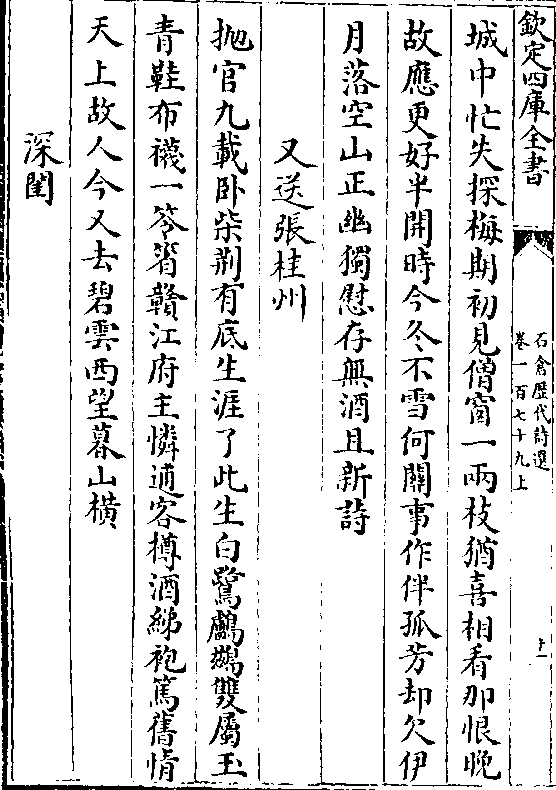 欽定四庫全書
石倉歷代詩選
卷一百七十九上
十一
城中忙失探梅期初見僧窗一兩枝猶喜相看那恨晚
故應更好半開時今冬不雪何關事作伴孤芳却欠伊
月落空山正幽獨慰存無酒且新詩
又送張桂州
抛官九載卧柴荆有底生涯了此生白鷺鸕鷀雙屬玉
青鞋布襪一笭箵贛江府主憐逋客樽酒綈袍篤舊情
天上故人今又去碧雲西望暮山橫
深閨